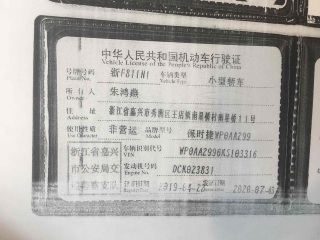 中华人民共和国机动车行驶证
Vehicle License of the People's Republic of China
号牌号码 新F811N1 车辆类型 小型轿车
Plate No. Vehicle Type
所有人 朱鸿燕
Owner
住址 浙江省嘉兴市秀洲区王店镇南梅村南梅桥11号
Address
使用性质 非营运 品牌型号 保时捷WP0AA299
Use Character Model
浙江省嘉兴 车辆识别代号 WP0AA2996KS103316
VIN
市公安局交 发动机号码 DCK023831
Engine No.
注册日期 2019-04-23 发证日期 2020-07